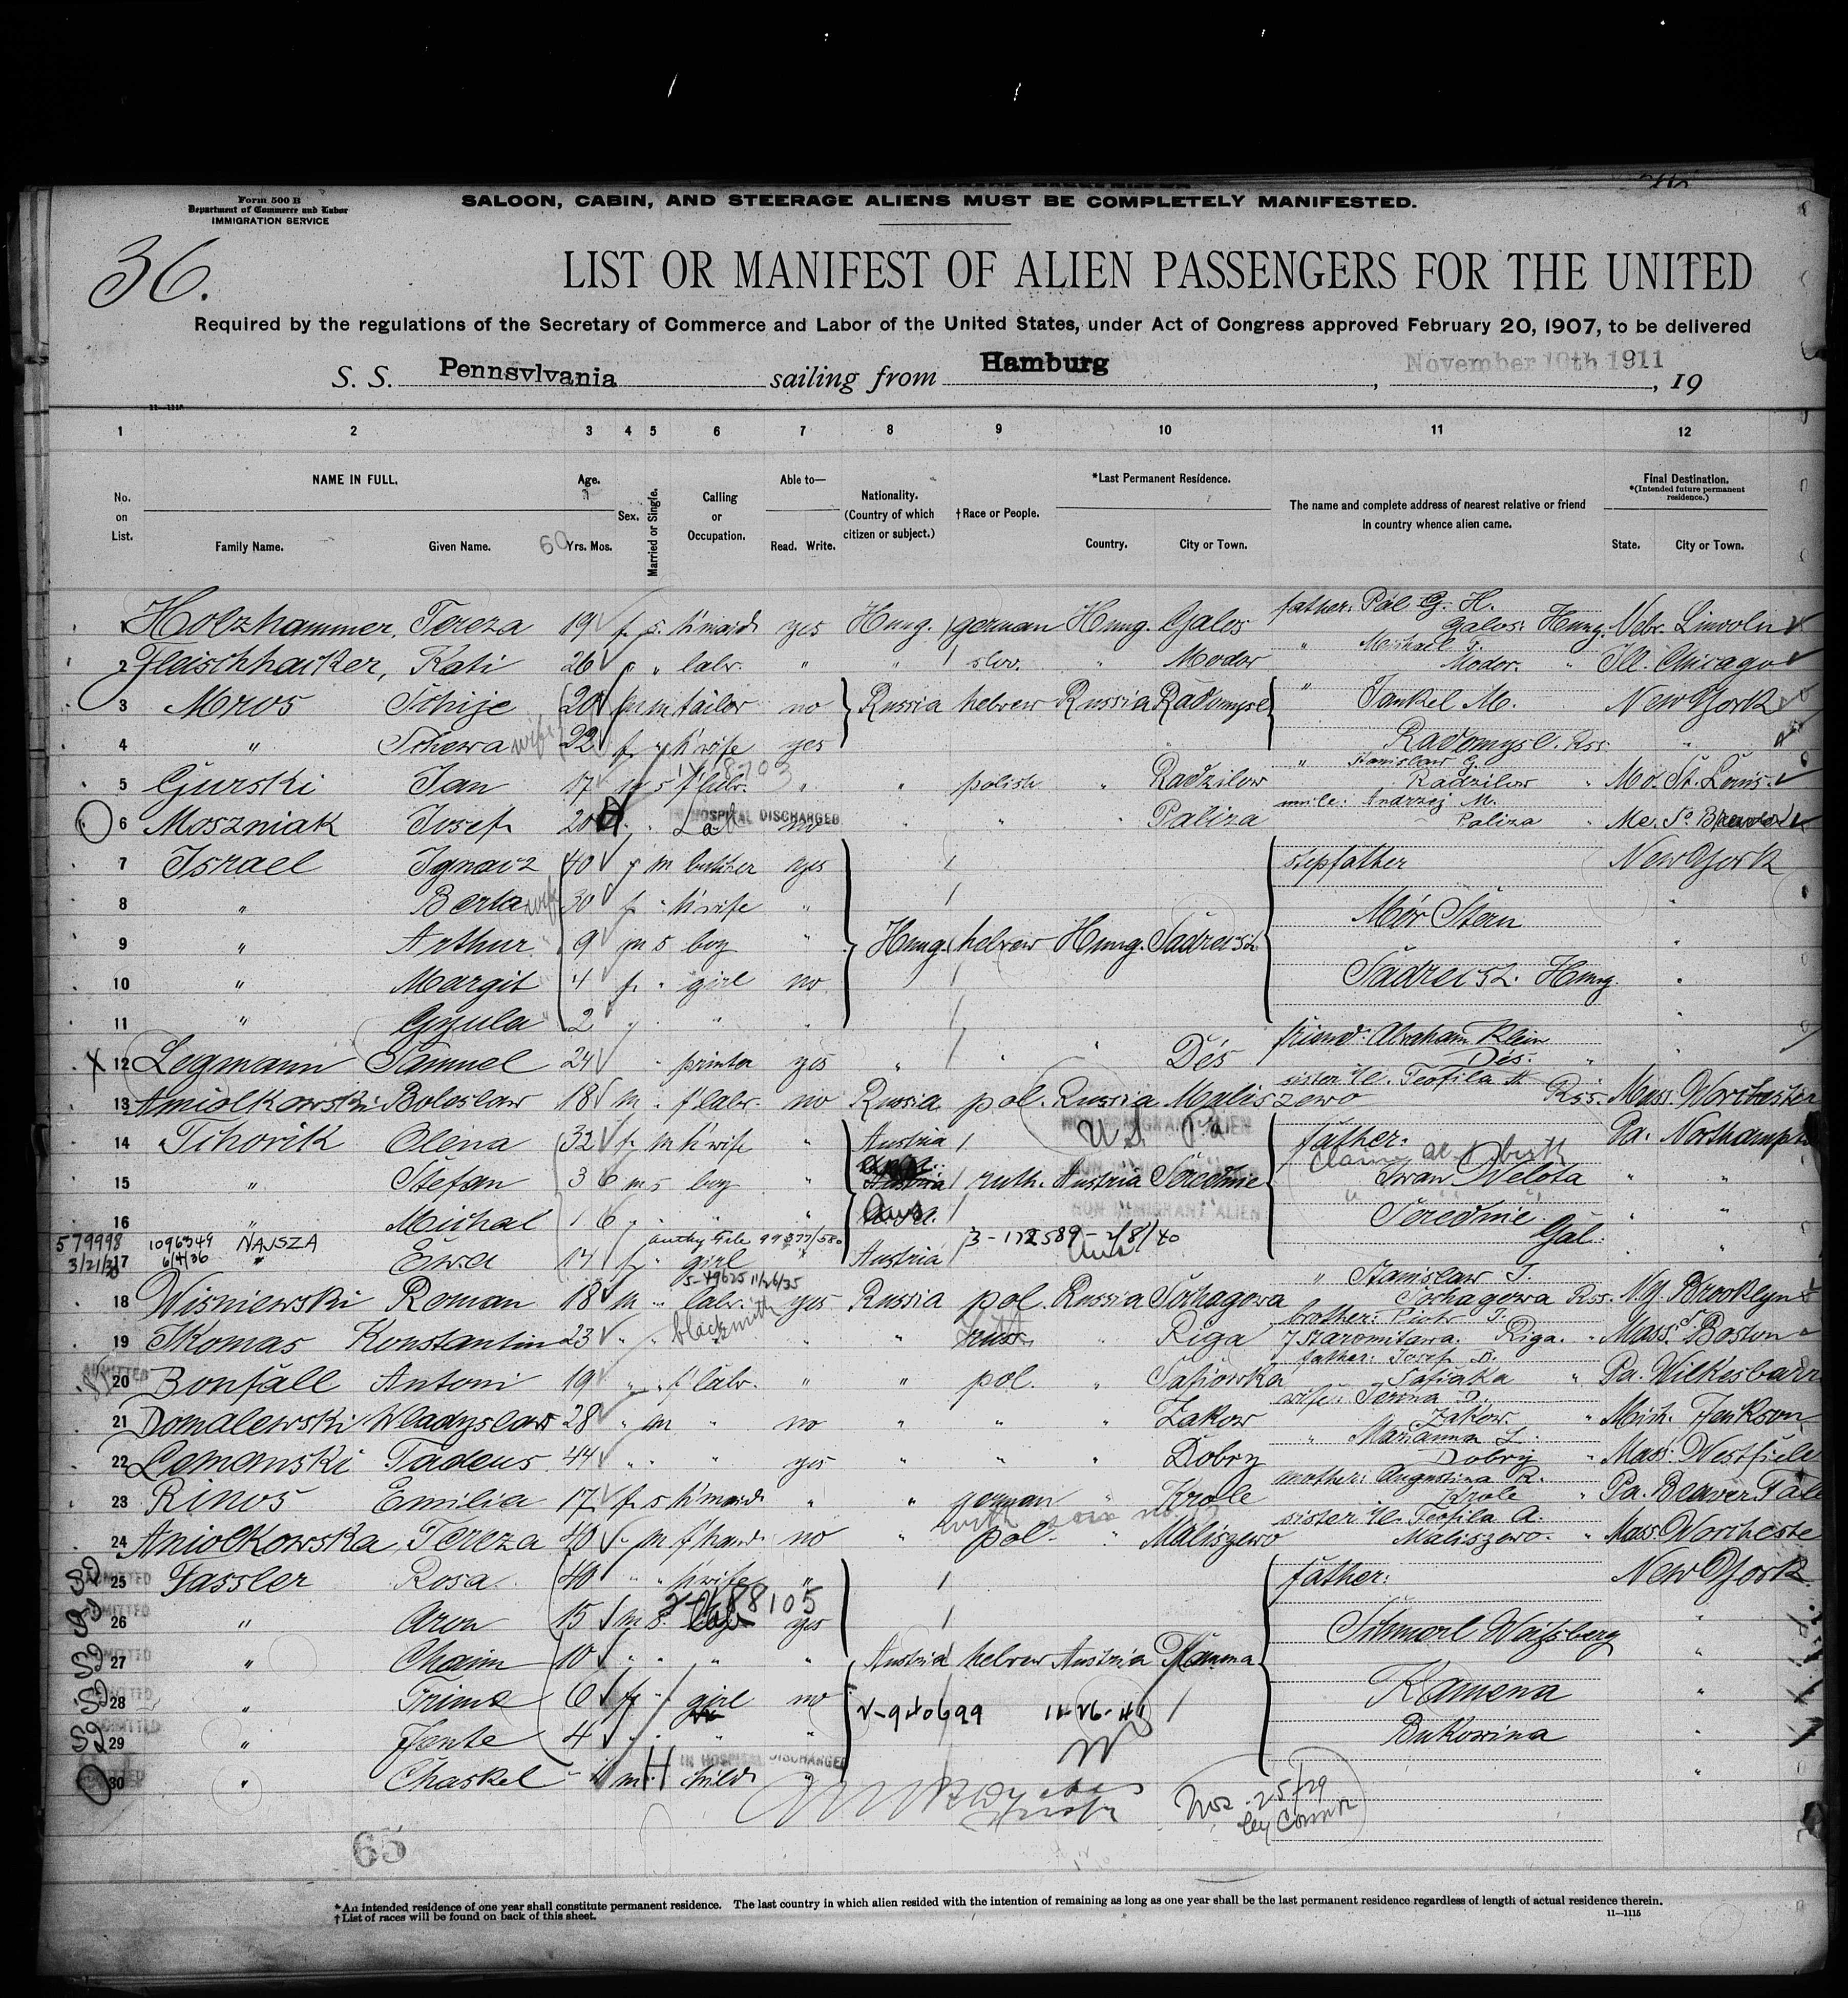 Form 500 B
Department of Commerce and Labor
IMMIGRATION SERVICE
SALOON, CABIN, AND STEERAGE ALIENS MUST BE COMPLETELY MANIFESTED.
36.
LIST OR MANIFEST OF ALIEN PASSENGERS FOR THE UNITED
Required by the regulations of the Secretary of Commerce and Labor of the United States, under Act of Congress approved February 20, 1907, to be delivered
S. S. Pennsylvania sailing from Hamburg, November 10th 1911, 19
11—1115
1 2 3 4 5 6 7 8 9 10 11 12
No. on List. NAME IN FULL. Family Name. Given Name. Age. Yrs. Mos. Sex. Married or Single. Calling or Occupation. Able to— Read. Write. Nationality. (Country of which citizen or subject.) †Race or People. *Last Permanent Residence. Country. City or Town. The name and complete address of nearest relative or friend in country whence alien came. Final Destination. *(Intended future permanent residence.) State. City or Town.
60
1 Holzhammer, Tereza 19 f. s. h'maid yes Hung. german Hung. Galos father: Pál G. H. Galos. Hung. Nebr. Lincoln
2 Fleischhacker, Kati 26 " labr. " " slov. " Modor " Michael F. Modor. " Ill. Chicago
3 Mros Schije 20 m m tailor no Russia hebrew Russia Radomysl " Jankel M. New York
4 " Schewa wife 22 f " h'wife yes Radomysl. Rss. "
5 Gurski Jan 17 m s f'labr. " " polish " Radzilow " Stanislaw G. Radzilow " Mo. St. Louis.
6 Moszniak Josef 20 H " Lab IN HOSPITAL DISCHARGED no " " " Paliza uncle: Andrzej M. Paliza " Me. So. Brewer
7 Israel Ignacz 40 " m butcher yes stepfather New York
8 " Berta wife 30 f. " h'wife " Mór Stern "
9 " Arthur 9 m s boy " Hung. hebrew Hung. "
10 " Margit 4 f. " girl no Hung. "
11 " Gyula 2 " " " " "
12 Legmann Samuel 24 " printer yes " " " Dés friend: Abraham Klein Dés. " "
13 Aniolkowski Boleslaw 18 m " f'labr. no Russia pol. Russia Maliszewo sister i/l. Teofila A. Rss. Mass. Worchester
14 Tihorik Olena 32 f m h'wife " Austria U.S. Pa NON IMMIGRANT ALIEN father: Pa. Northampt
15 " Stefan 3 6 m s boy " ruth. Austria Serednie claim at birth Iwan Welota " "
16 " Michal 1 6 " " " NON IMMIGRANT ALIEN Serednie Gal. " "
579998 1096349 NAJSZA
3/21/ 6/4/36
17 " Ewa f " girl Austria 3-172589-2/8/40 " "
5-49625 11/26/35
18 Wisniewski Roman 18 m " labr. yes Russia pol. Russia Sochagowa " Stanislaw J. Sochagowa Rss. N.Y. Brooklyn
19 Tkomas Konstantin 23 " " blacksmith " " russ. " Riga brother: Piotr T. Riga. " Mass. Boston
20 ADMITTED Bonfall Antoni 19 " " f'labr. " " pol. " father: Josef B. " Pa. Wilkesbarr
21 Domalewski Wladyslaw 28 " m " no " " " Zakow wife: D. Zakow " Mich. Jenkson
22 Lomanski Tadeus 44 " " " yes " " " Dobry " Marianna L. Dobry " Mass. Westfiel
23 Rinos Emilia 17 f. s h'maid " " german " Krole mother: Augustina R. Krole " Pa. Beaver Fall
24 Aniolkowska, Tereza 40 " m f'hand no " pol. " Maliszewo sister i/l. Teofila A. Maliszewo. " Mass. Worcheste
25 ADMITTED Fassler Rosa 40 " " h'wife " father: New York
26 ADMITTED " Aron 15 m s. yes Schmorl Waissberg "
2-188105
27 ADMITTED " Chaim 10 " " " " Austria hebrew Austria Kamena "
28 ADMITTED " Frime 6 f " girl no Kamena "
2-940699 11-26-41
29 ADMITTED " Jente 4 " " " " Bukowina "
30 ADMITTED " Chaskel m. H child IN HOSPITAL DISCHARGED " "
65
*An intended residence of one year shall constitute permanent residence. The last country in which alien resided with the intention of remaining as long as one year shall be the last permanent residence regardless of length of actual residence therein.
†List of races will be found on back of this sheet.
11—1115